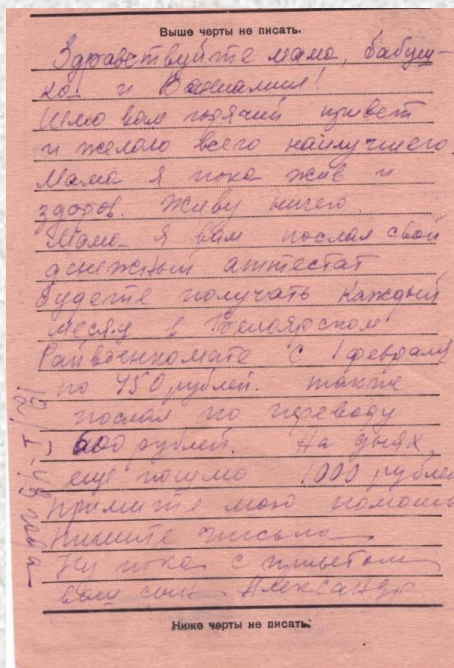 Выше черты не писать.
Здравствуйте мама, бабуш-
ка и Вениамин!
Шлю вам горячий привет
и желаю всего наилучшего.
Мама я пока жив и
здоров. Живу ничего.
Мама я вам послал свой
денежный аттестат
будете получать каждый
месяц в Белоярском
Райвоенкомате с 1 февраля
по 450 рублей. также
послал по переводу
600 рублей. На днях
еще пошлю 1000 рублей
примите мою помощь
Пишите письма
Ну пока с приветом
ваш сын Александр
Ниже черты не писать.
12/I-43 года